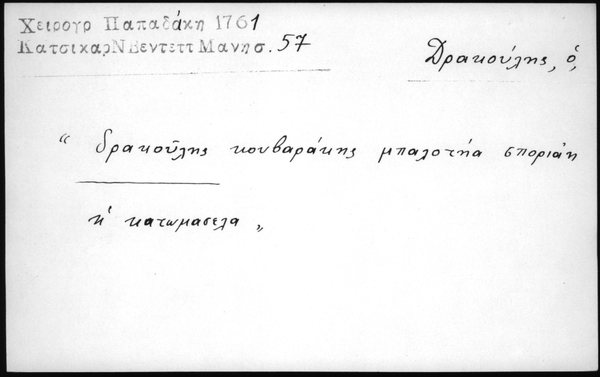 Χειρογρ Παπαδάκη 1761
ΚατσικαρΝΒεντεττΜανησ. 57
Δρακούλης, ὁ,
“ δρακοῦλης κουβαράκης μπαλοτηά σποριάη
κ' κατωμασελα „